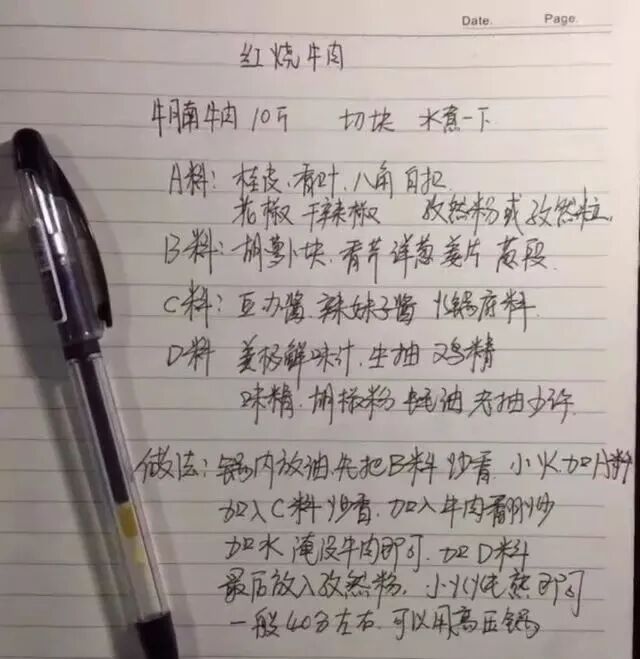 Date. Page.
红烧牛肉
牛腩牛肉 10斤 切块 水煮一下
A料：桂皮、香叶、八角 白扣
花椒 干辣椒 孜然粉或孜然粒
B料：胡萝卜块、香芹 洋葱 姜片 葱段
C料：豆办酱、辣妹子酱 火锅底料
D料 美极鲜味汁、生抽 鸡精
味精、胡椒粉 蚝油 老抽少许
做法：锅内放油，先把B料炒香，小火加A料
加入C料炒香，加入牛肉翻炒
加水淹没牛肉即可，加D料
最后放入孜然粉，小火炖熟即可
一般40分左右，可以用高压锅